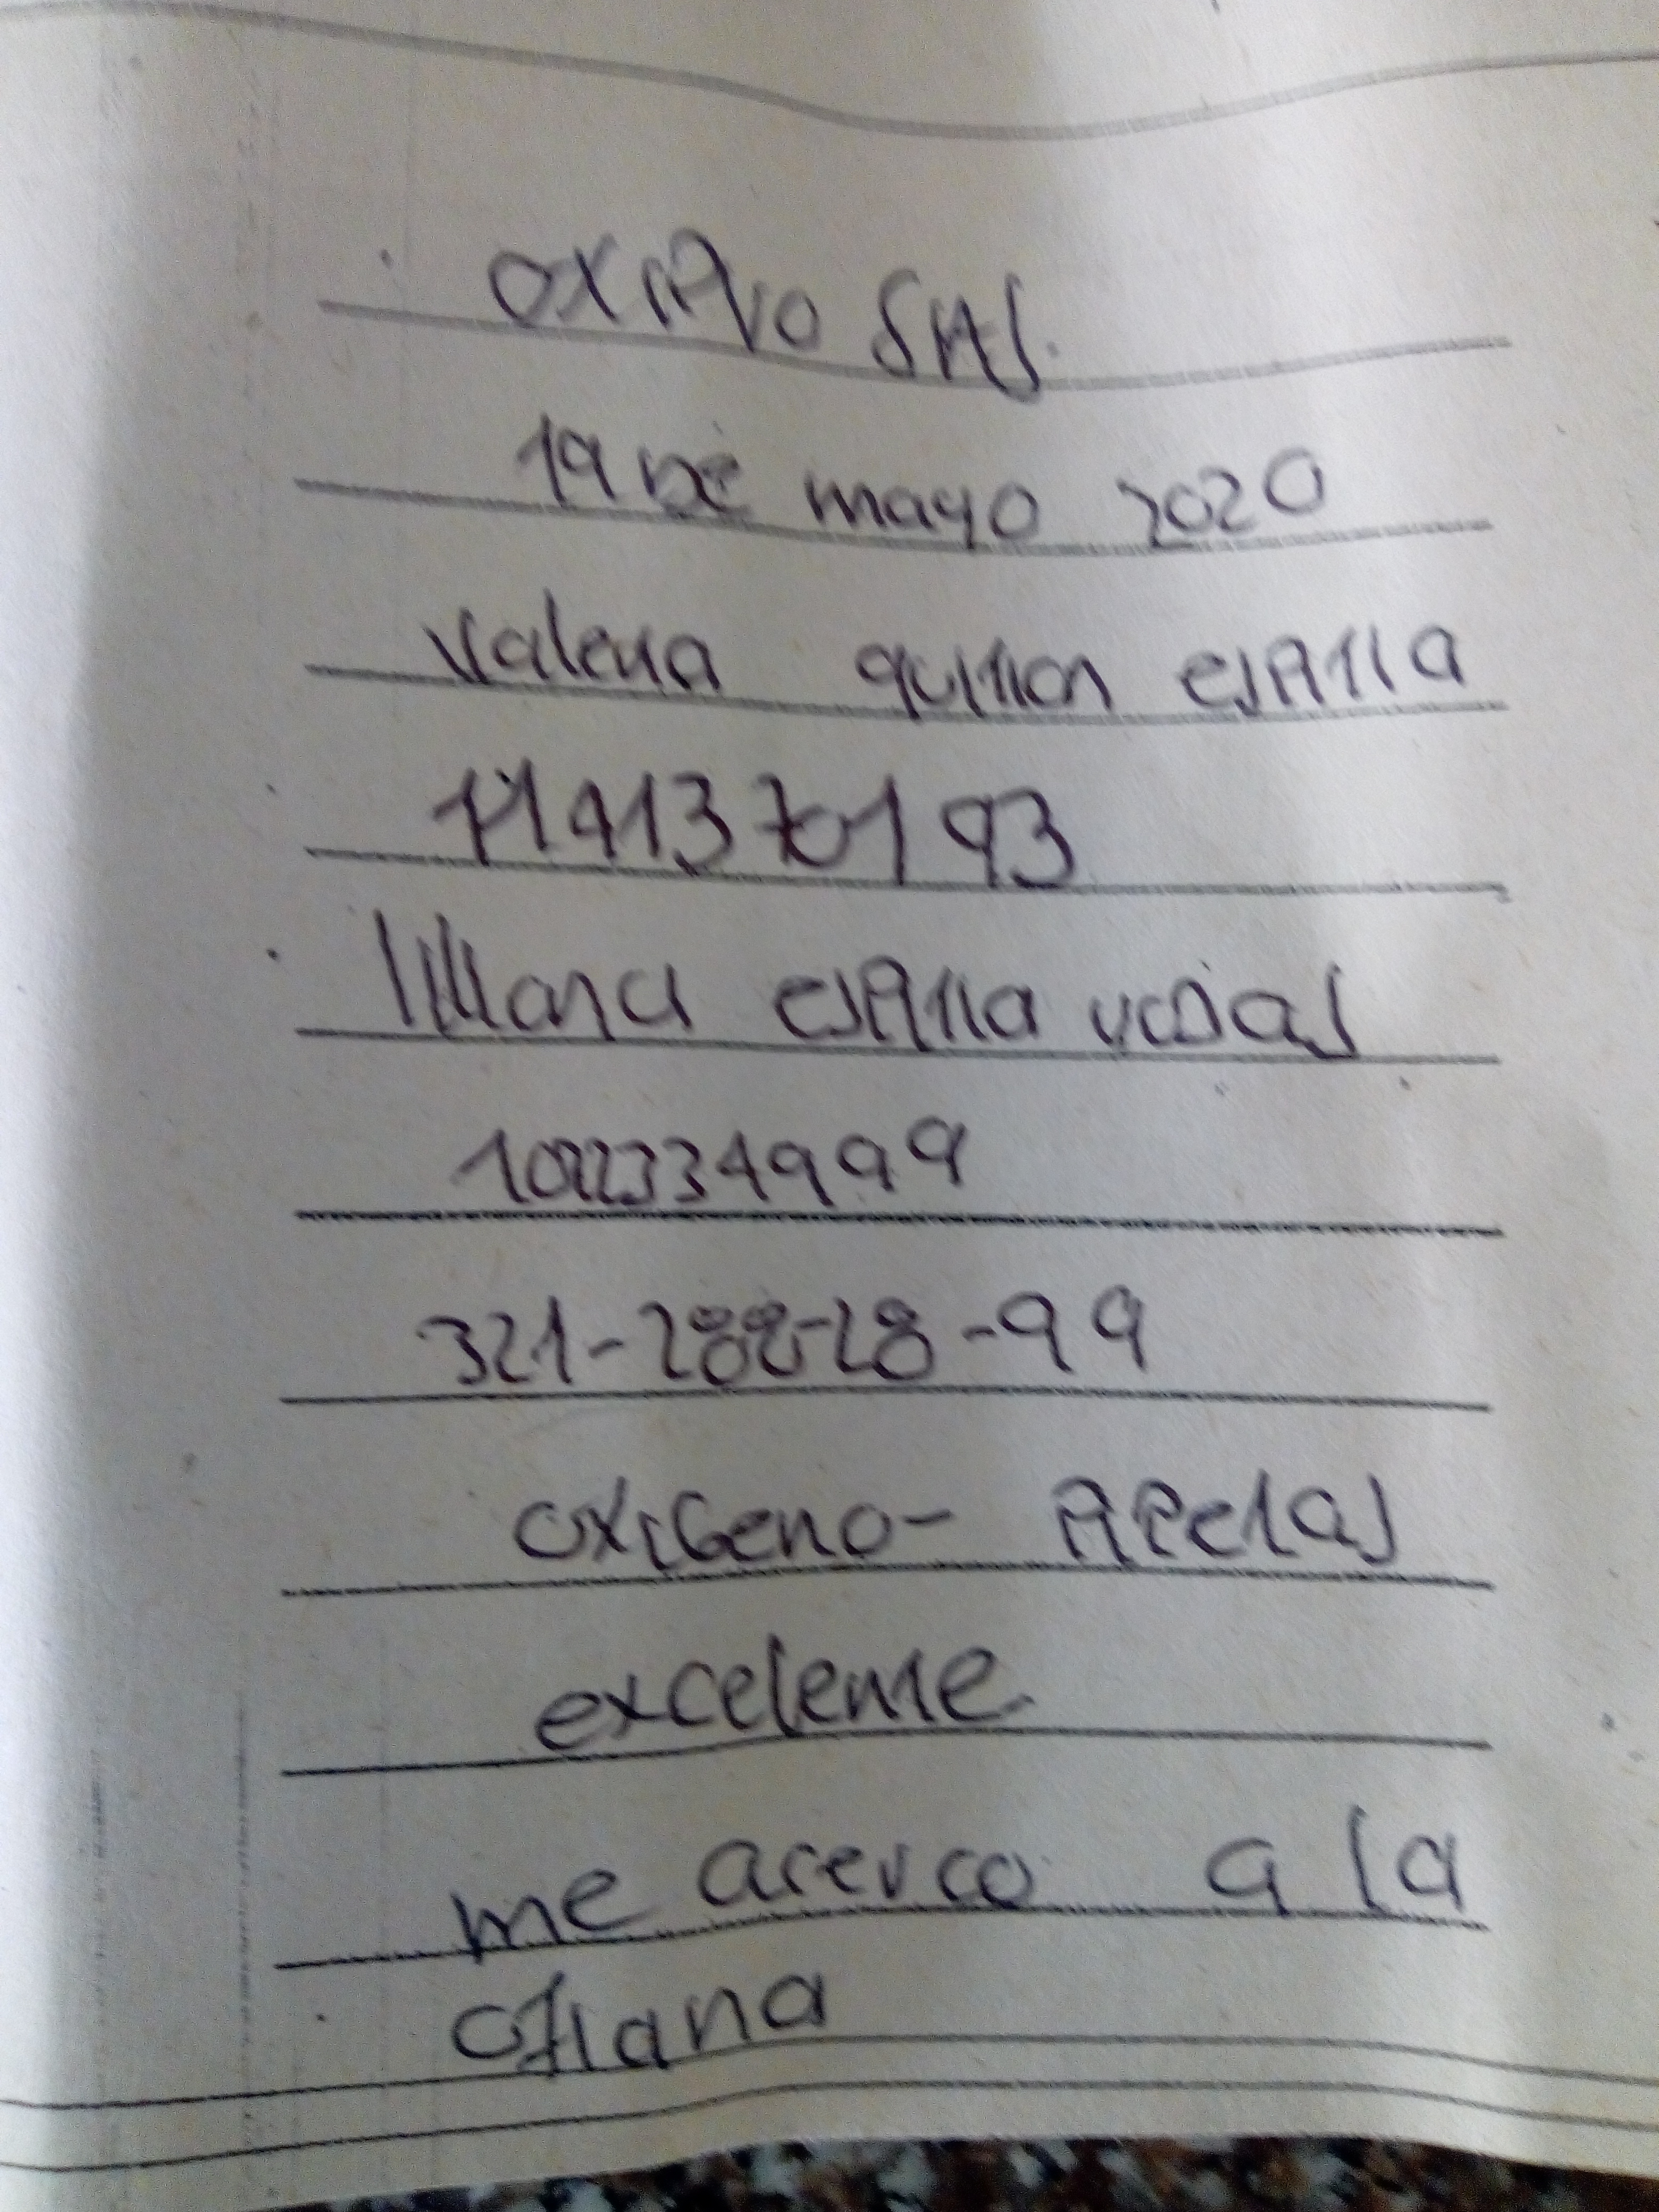 OXIVIVO SAS.
19 DE mayo 2020
Valeria quiñon esPitia
1141370193
liliana esPitia
1022334999
321-288-28-99
OXIGeno- APelas
excelente
me acerco a la
oficina